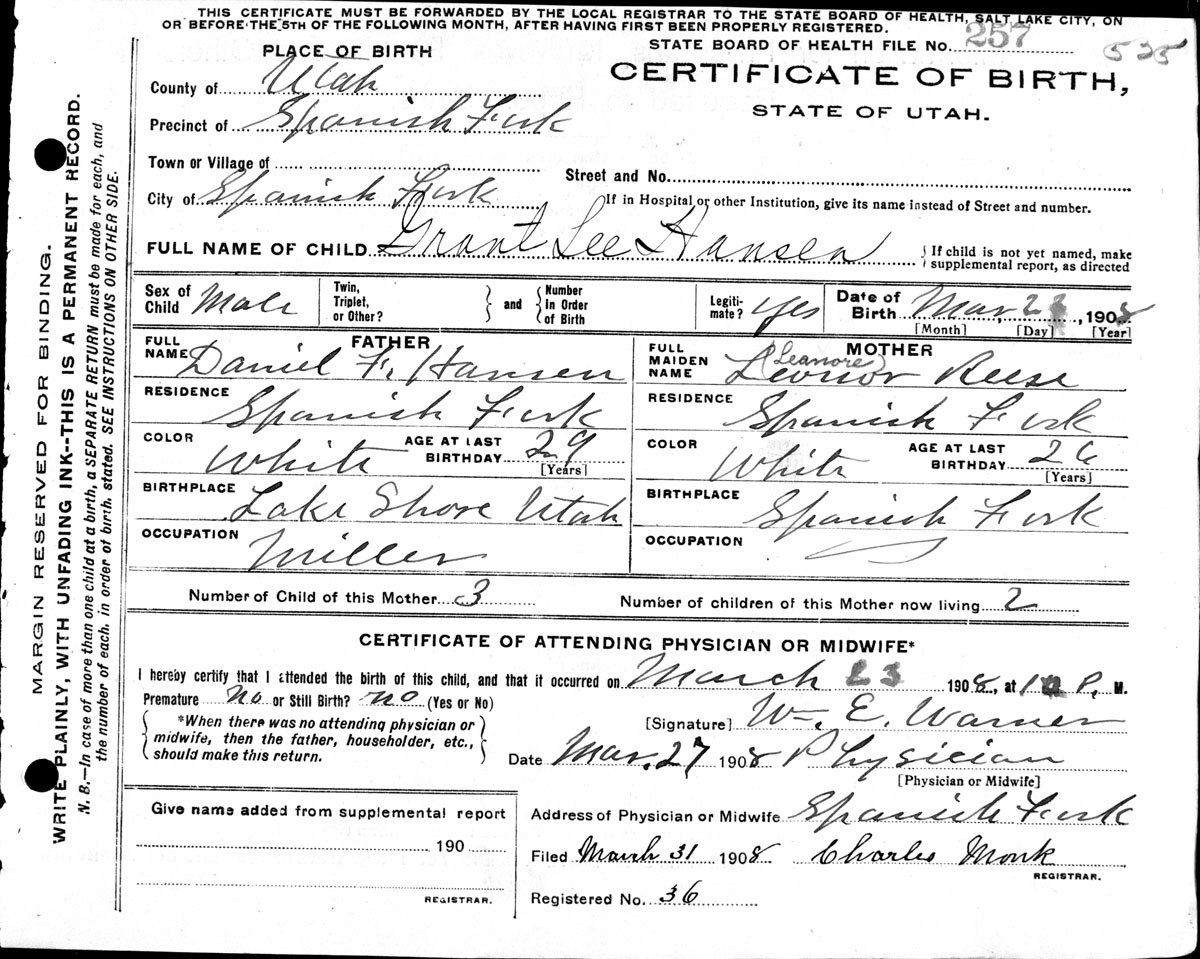 THIS CERTIFICATE MUST BE FORWARDED BY THE LOCAL REGISTRAR TO THE STATE BOARD OF HEALTH, SALT LAKE CITY, ON
OR BEFORE THE 5TH OF THE FOLLOWING MONTH, AFTER HAVING FIRST BEEN PROPERLY REGISTERED.
PLACE OF BIRTH
STATE BOARD OF HEALTH FILE No. 257
535
County of Utah
CERTIFICATE OF BIRTH,
STATE OF UTAH.
Precinct of Spanish Fork
Town or Village of
Street and No.
City of Spanish Fork
If in Hospital or other Institution, give its name instead of Street and number.
FULL NAME OF CHILD Grant Lee Hansen
If child is not yet named, make
supplemental report, as directed
Sex of Child Male
Twin, Triplet, or Other?
and
Number in Order of Birth
Legiti-mate? Yes
Date of Birth Mar, 2 1908
[Month] [Day] [Year]
FATHER
FULL NAME Daniel F. Hansen
RESIDENCE Spanish Fork
COLOR White
AGE AT LAST BIRTHDAY 29
[Years]
BIRTHPLACE Lake Shore Utah
OCCUPATION Miller
MOTHER
FULL MAIDEN NAME Leonor (Leanore) Reese
RESIDENCE Spanish Fork
COLOR White
AGE AT LAST BIRTHDAY 26
[Years]
BIRTHPLACE Spanish Fork
OCCUPATION
Number of Child of this Mother 3
Number of children of this Mother now living 2
CERTIFICATE OF ATTENDING PHYSICIAN OR MIDWIFE*
I hereby certify that I attended the birth of this child, and that it occurred on March 23 1908, at P. M.
Premature No or Still Birth? no (Yes or No)
*When there was no attending physician or
midwife, then the father, householder, etc.,
should make this return.
[Signature] Wm. E. Warner
Date Mar. 27 1908 Physician
[Physician or Midwife]
Give name added from supplemental report
190
REGISTRAR.
Address of Physician or Midwife Spanish Fork
Filed March 31 1908 Charles Monk
REGISTRAR.
Registered No. 36
MARGIN RESERVED FOR BINDING.
WRITE PLAINLY, WITH UNFADING INK--THIS IS A PERMANENT RECORD.
N. B.—In case of more than one child at a birth, a SEPARATE RETURN must be made for each, and
the number of each, in order of birth, stated. SEE INSTRUCTIONS ON OTHER SIDE.